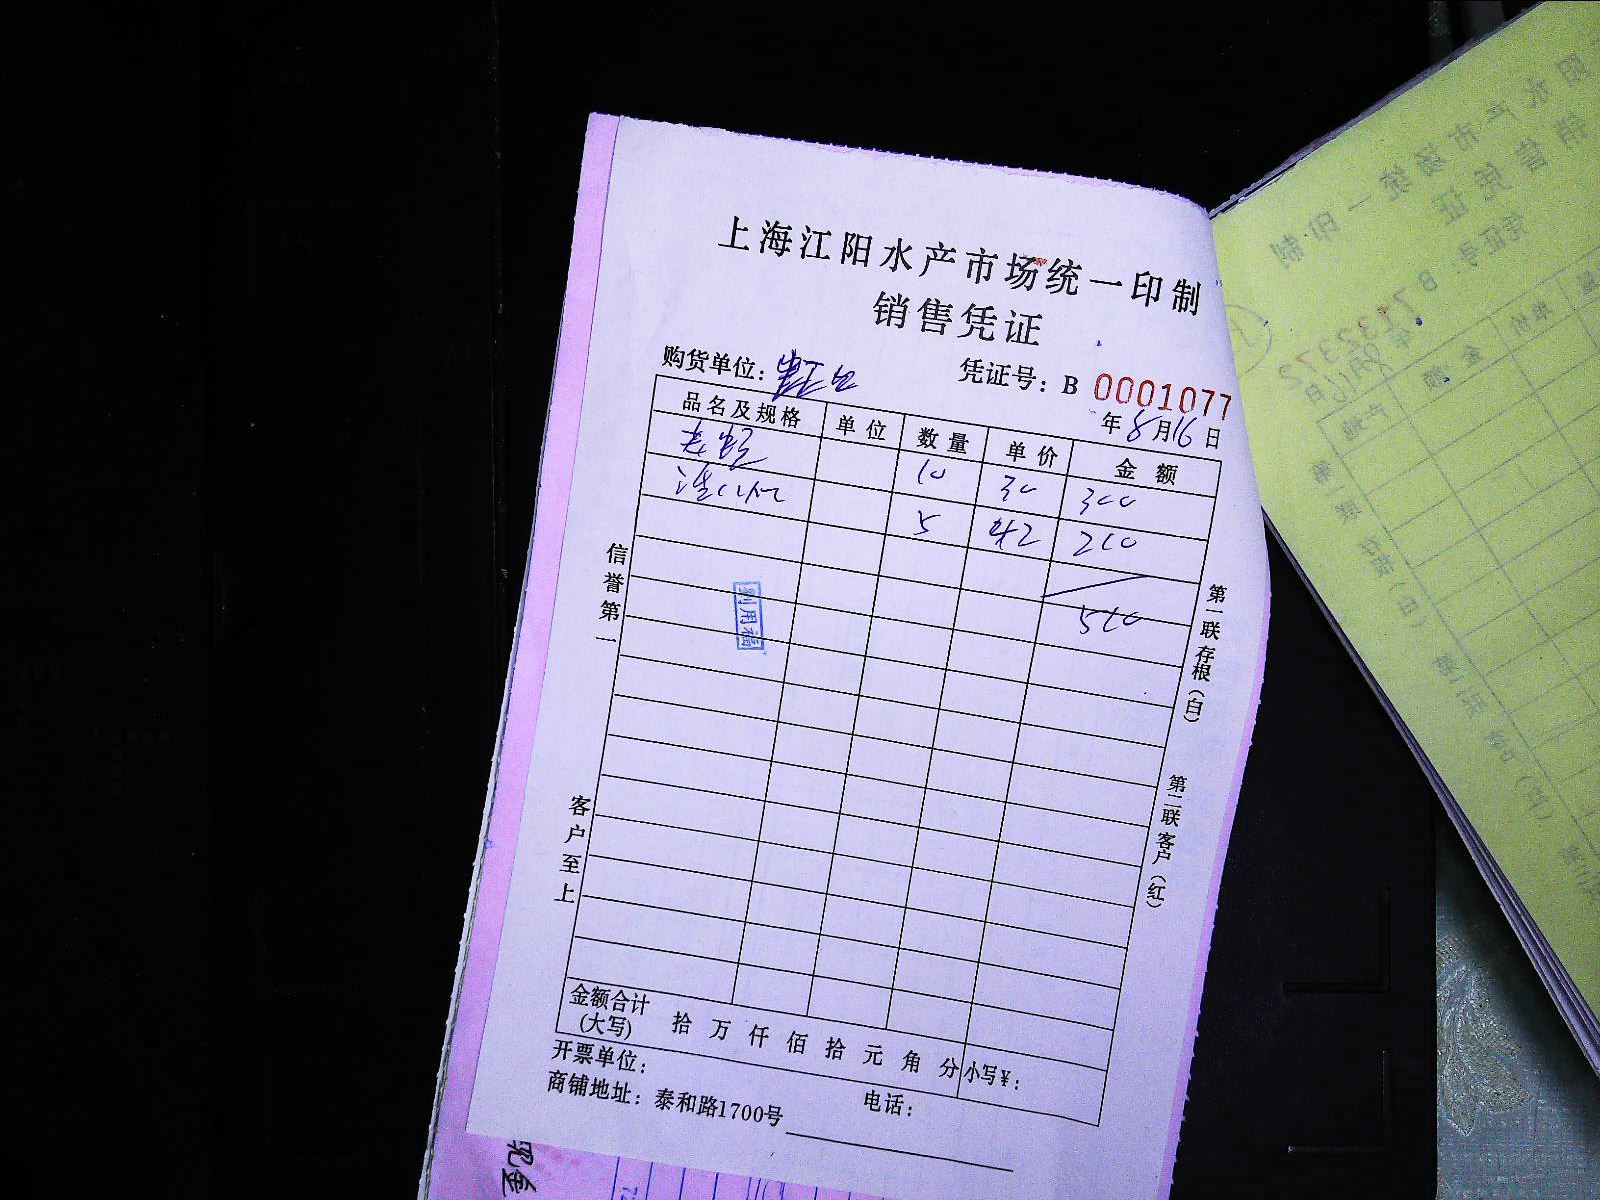 上海江阳水产市场统一印制
销售凭证
购货单位：
凭证号：B 0001077
年8月16日
品名及规格 单位 数量 单价 金额
10 30 300
5 42 210
510
信誉第一
客户至上
第一联存根（白）
第二联客户（红）
金额合计(大写) 拾 万 仟 佰 拾 元 角 分 小写¥：
开票单位：
电话：
商铺地址：泰和路1700号
现金
阳水产市场统一印制
销售凭证
凭证号 B 7132372